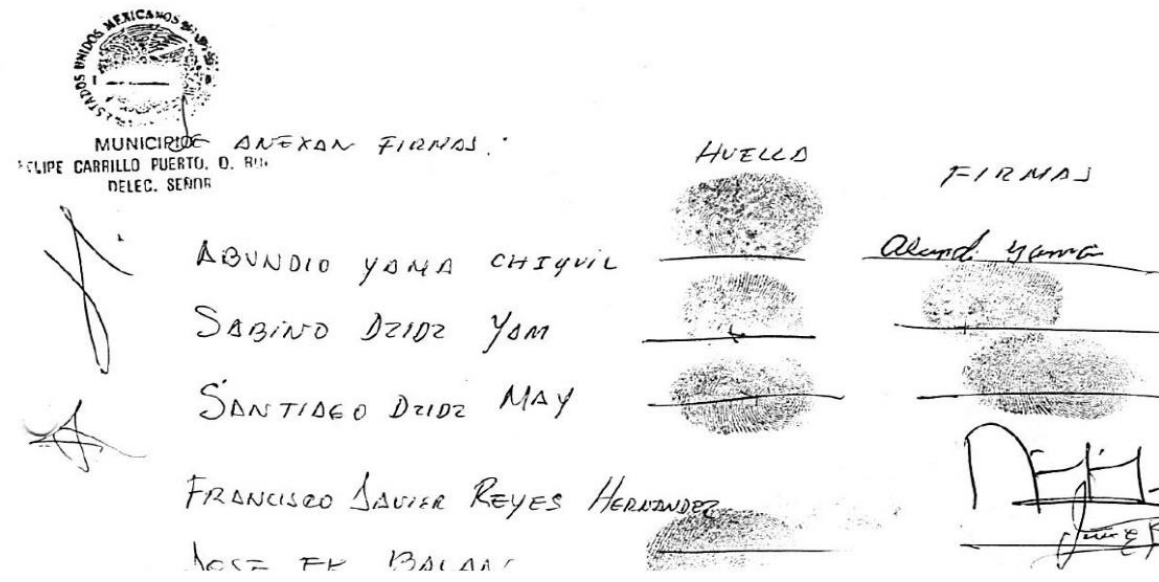 ESTADOS UNIDOS MEXICANOS
MUNICIPIO
SE ANEXAN FIRMAS.
FELIPE CARRILLO PUERTO, Q. ROO
DELEC. SEÑOR
HUELLA
FIRMAS
ABUNDIO YAMA CHIQUIL
SABINO DZIDZ YAM
SANTIAGO DZIDZ MAY
FRANCISCO JAVIER REYES HERNANDEZ
JOSE EK BALAM